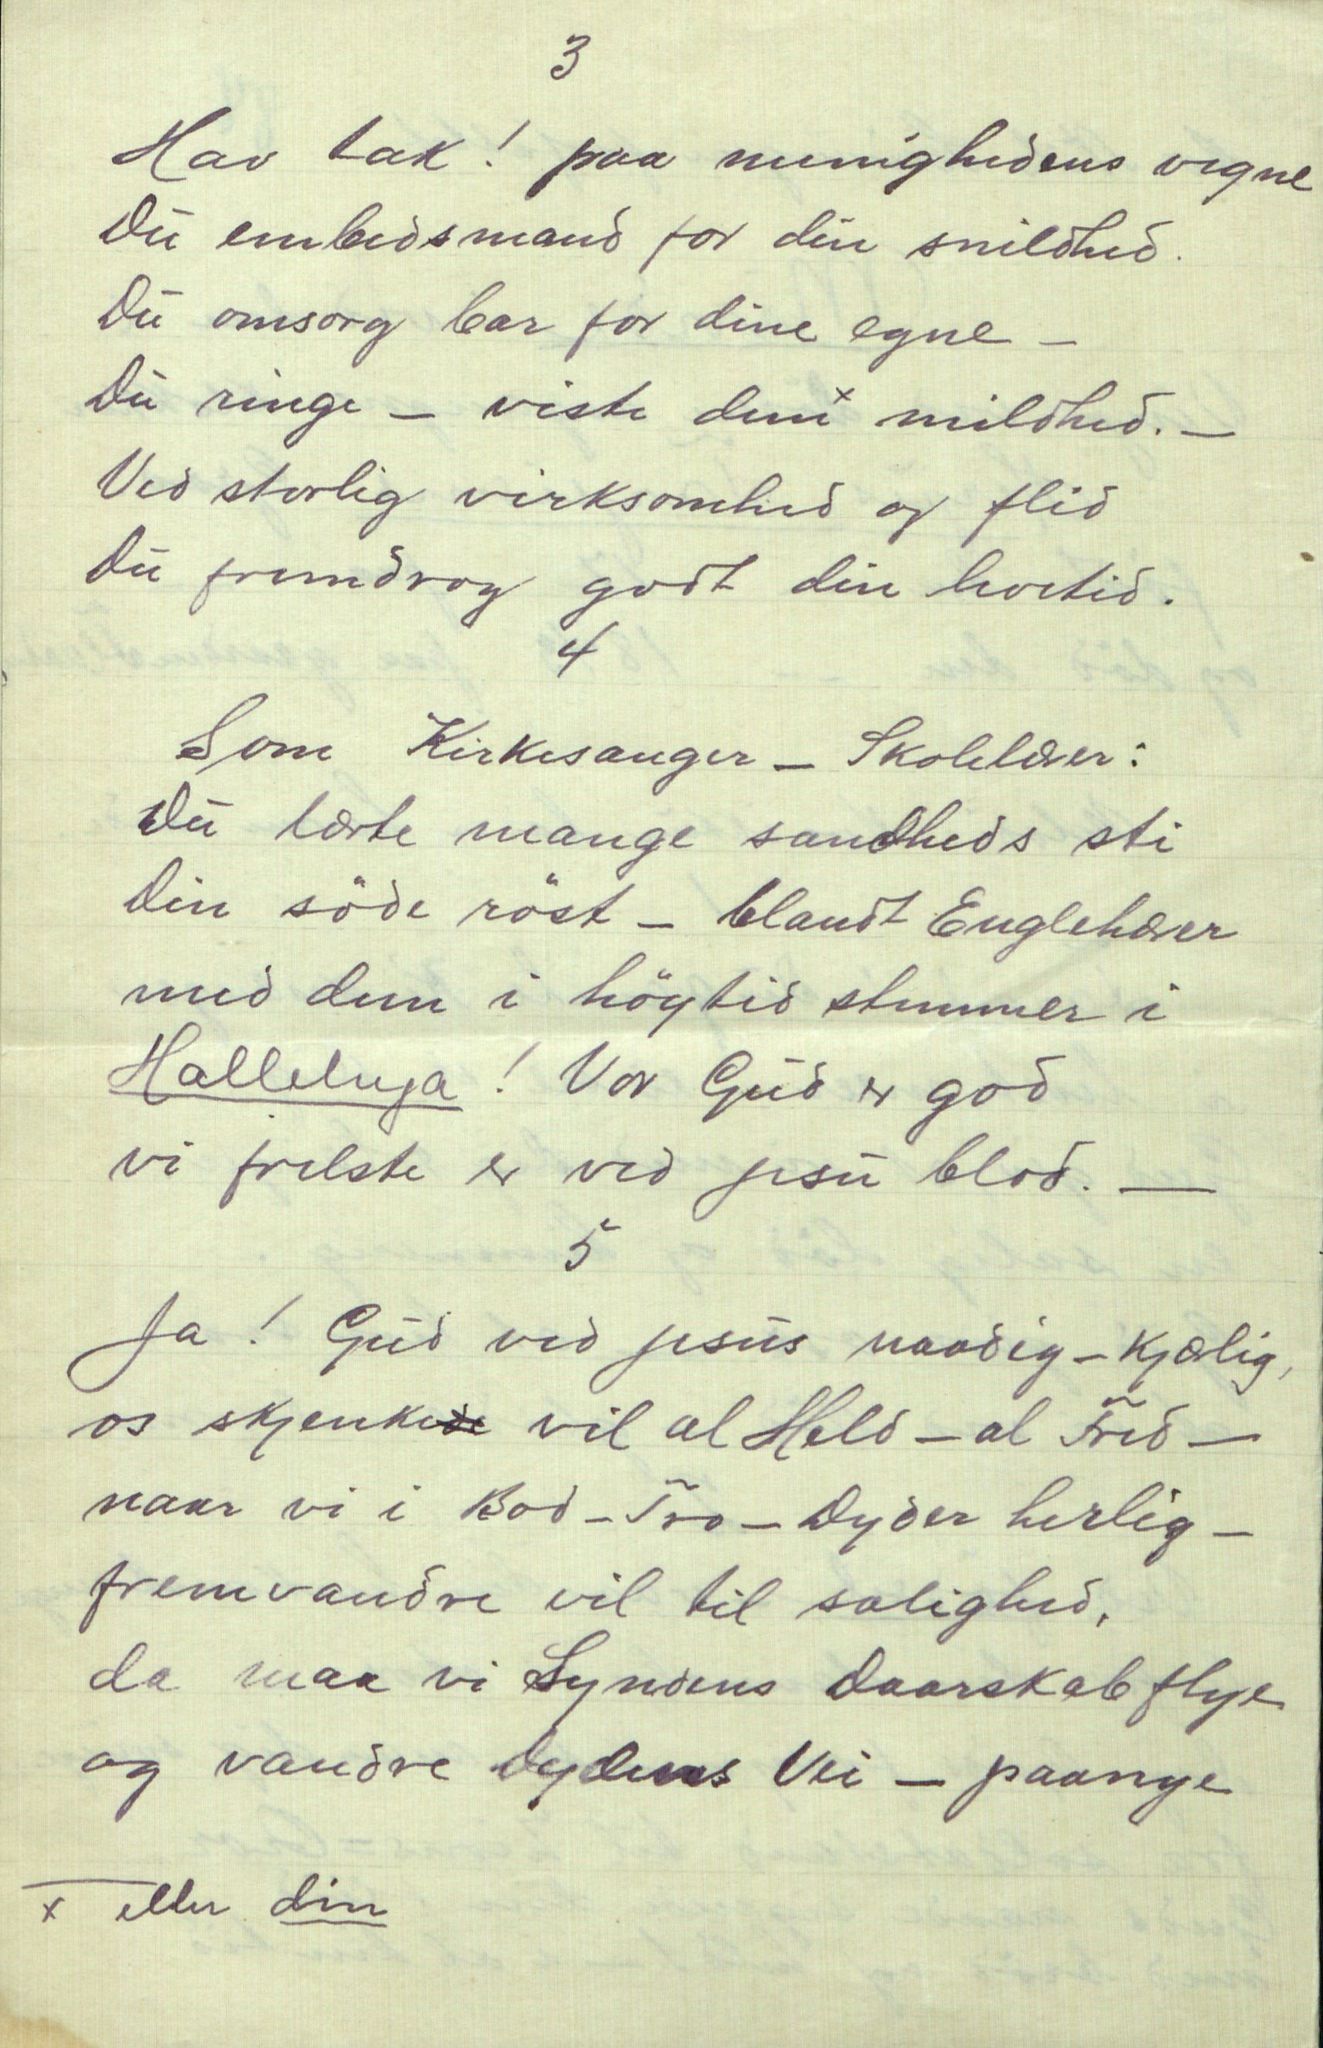 3
Hav tak! paa menighedens vegne
Du embedsmand for din snildhed.
Du omsorg bar for dine egne –
Du ringe – viste dem x mildhed. –
Ved storlig virksomhed og flid
Du fremdrog godt din livstid.
4
Som Kirkesanger – Skolelærer:
Du lærte mange sandheds sti
Din söde röst – blandt Englehærer
med dem i höytid stemmer i
Halleluja! Vor Gud er god
vi frelste er ved Jesu blod. —
5
Ja! Gud ved Jesus naadig – kjærlig,
os skjenke vil al Held – al Fred –
naar vi i Bod – Tro – Dyder herlig –
fremvandre vil til salighed,
da maa vi Syndens Daarskab flye
og vandre Dydens Vei – paanye
x eller din